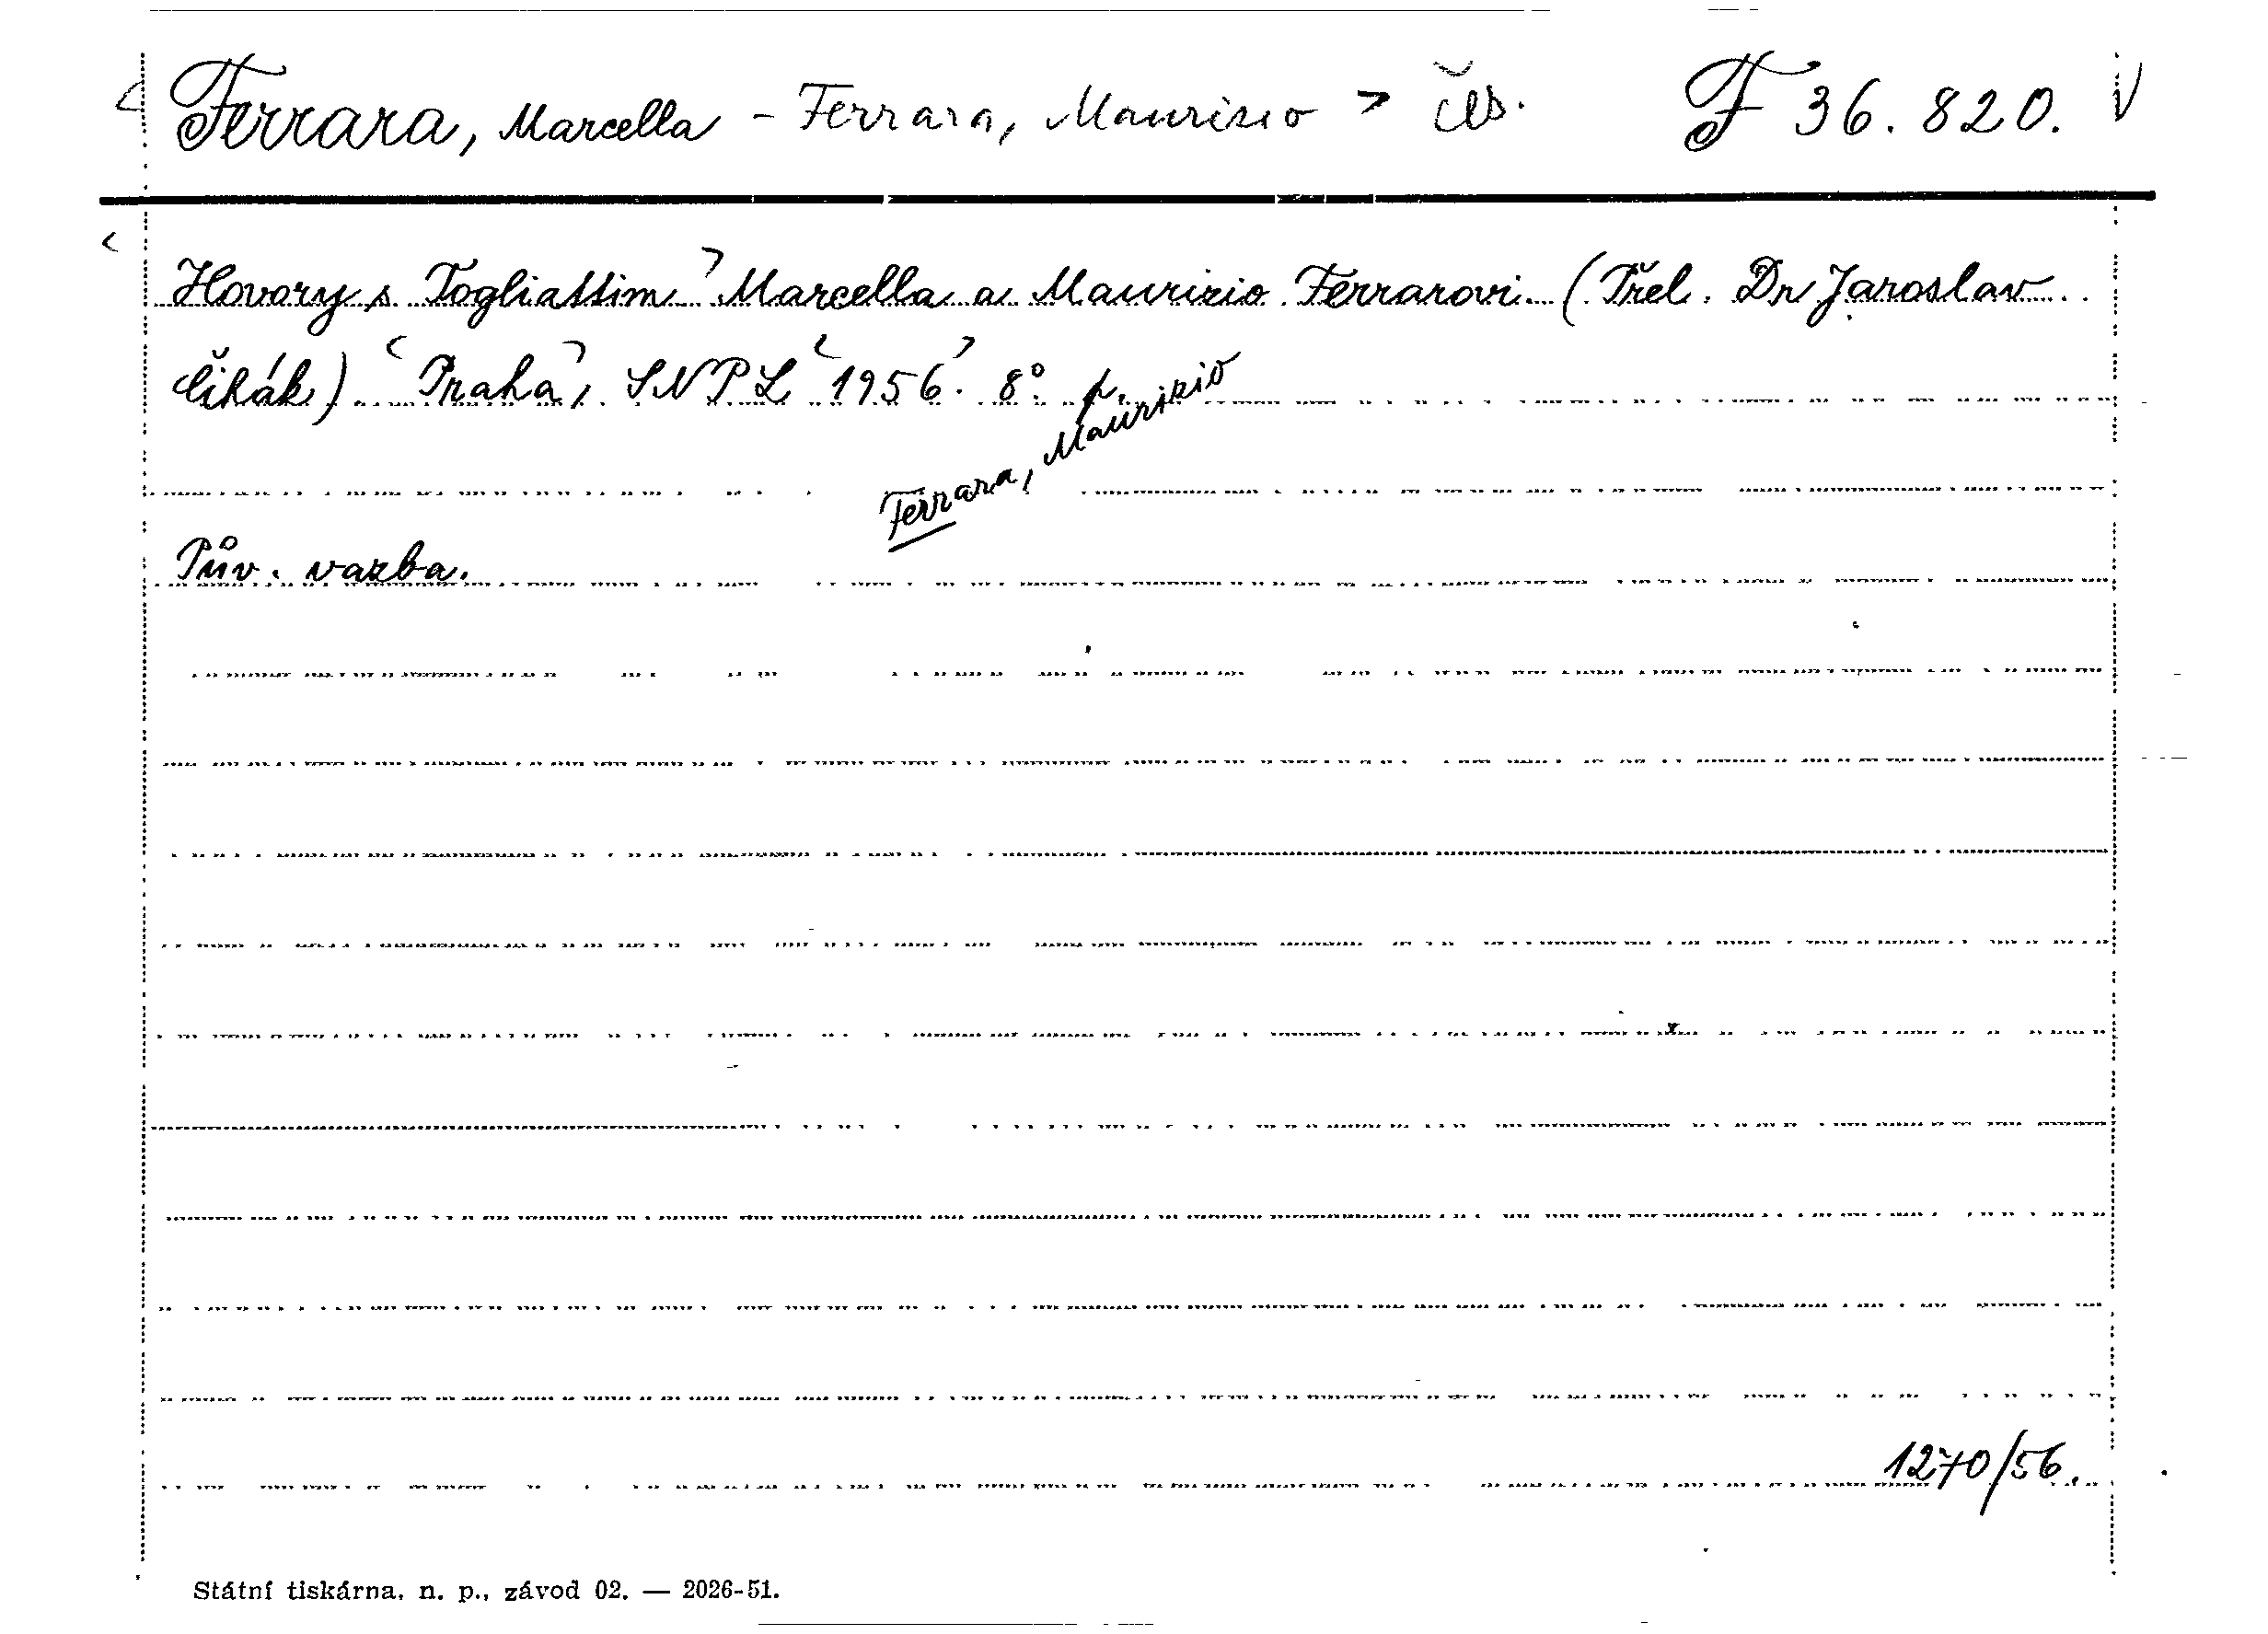 < Ferrara, Marcella - Ferrara, Maurizio > čes. F 36.820. V
< Hovory s Togliattim > Marcella a Maurizio Ferrarovi. (Přel. Dr Jaroslav
Čihák). < Praha >, SNPL < 1956 >. 8°. p.
Ferrara, Maurizio
Pův. vazba.
1270/56.
Státní tiskárna, n. p., závod 02. — 2026-51.